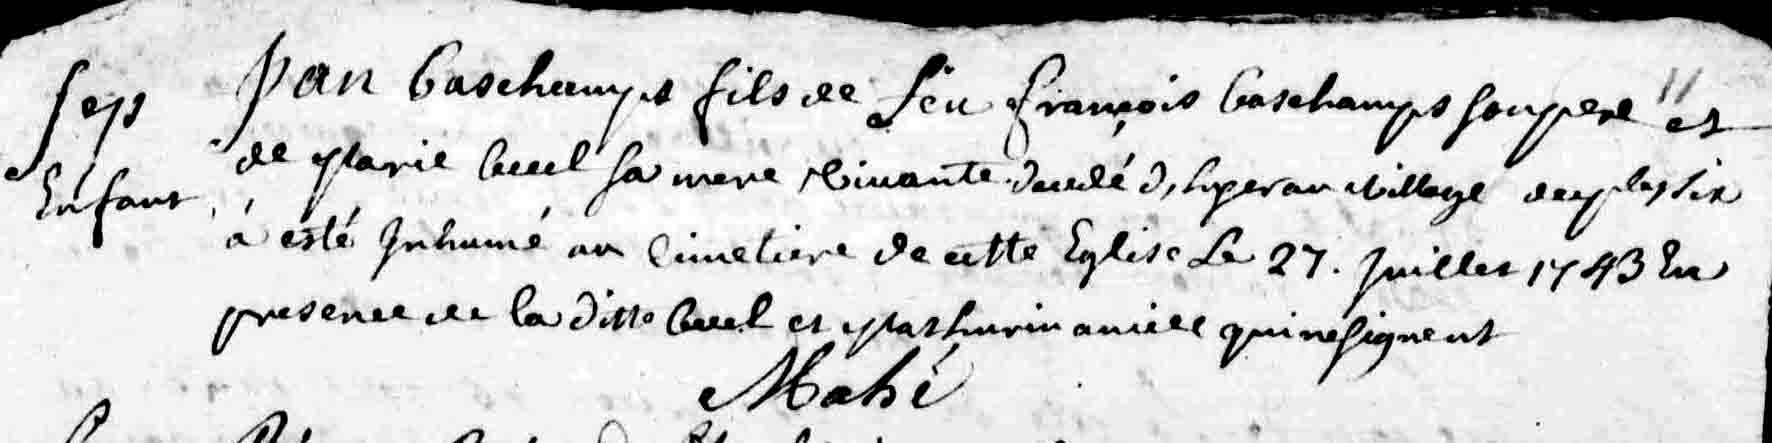 Sep
Enfant
Jan baschamps fils de feu françois baschamps son pere et
de Marie beuel sa mere vivante decedé d'hyer au village du plessix
á esté Inhumé au cimetiere de cette Eglise Le 27. Juillet 1743 En
presence de la ditte beuel et Mathurin qui ne signent
Mahé